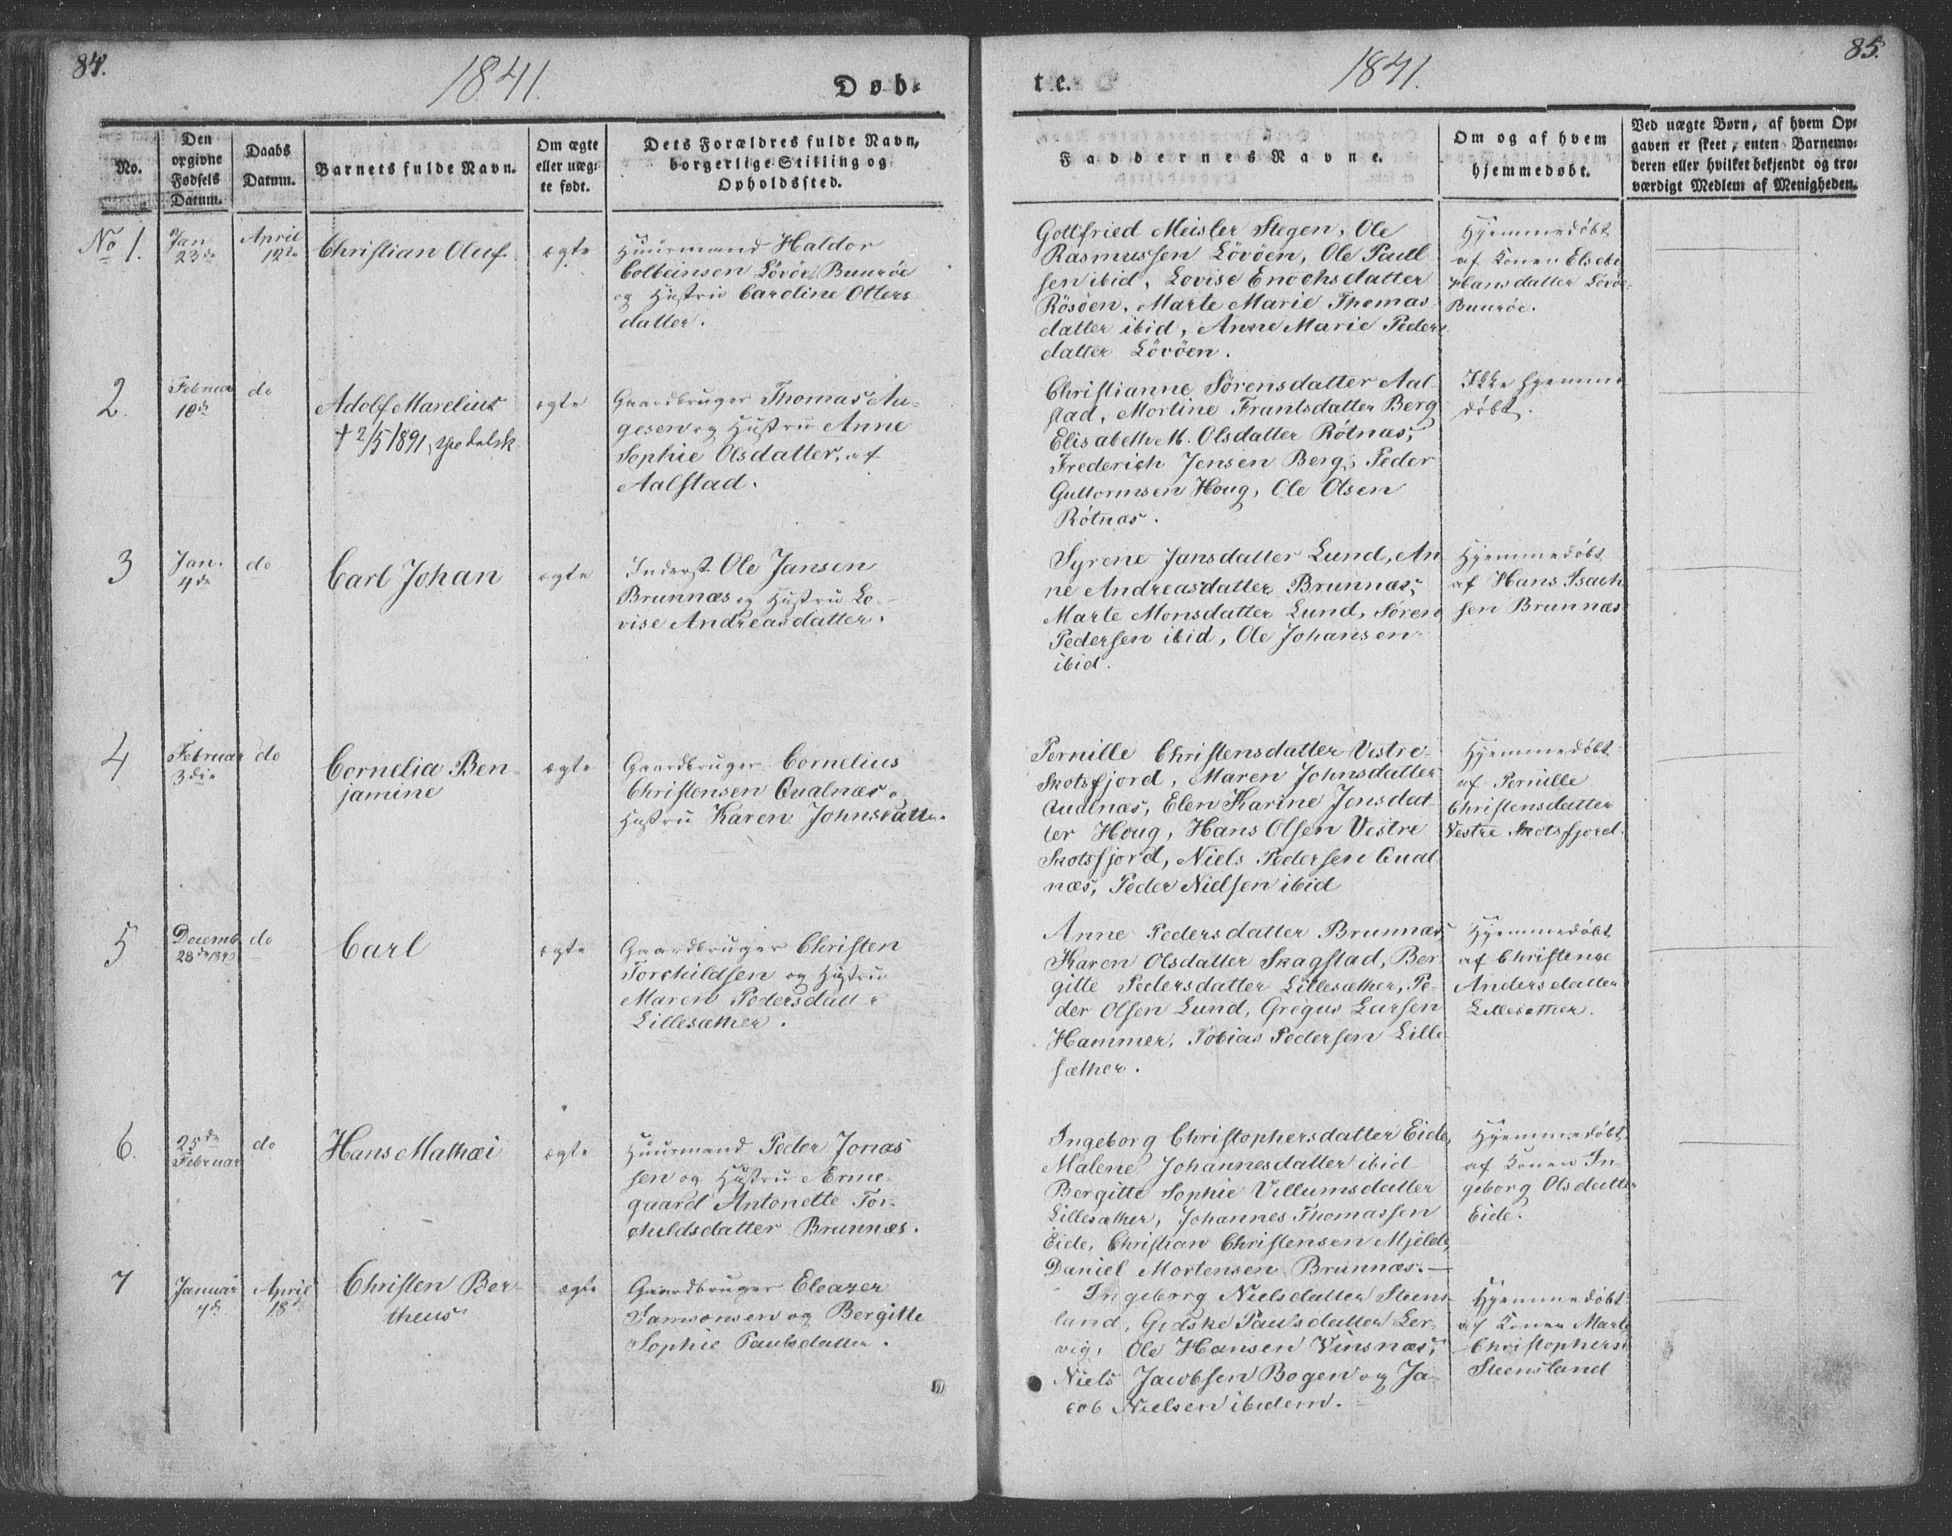 84.
1841.
Døb-
No.
Den opgivne Fødsels Datum.
Daabs Datum.
Barnets fulde Navn.
Om ægte eller uæg- te født.
Dets Forældres fulde Navn, borgerlige Stilling og Opholdssted.
No 1.
Jan 23de
April 12te
Christian Oluf
ægte
Huurmand Haldor
Colbeinsen Lövöe, Buuröe
og Hustru Caroline Otters
datter.
2.
Februar 10de
do
Adolf Marelius
† 2/5 1891, spedalsk
ægte
Gaardbruger Thomas Aa-
gesen og Hustru Anne
Sophie Olsdatter, af
Aalstad.
3
Jan. 4de
do
Carl Johan
ægte
Inderst Ole Jansen
Brunnæs og Hustru Lo-
vise Andreasdatter.
4
Februar 3die
do
Cornelia Ben-
jamine
ægte
Gaardbruger Cornelius
Christensen Qualnæs o
Hustru Karen Johnsdatter
5
Decemb 28de 1840
do
Carl
ægte
Gaardbruger Christen
Torchildsen og Hustru
Maren Pedersdatter
Lillesæther.
6.
25de Februar
do
Hans Mathæi
ægte
Huurmand Peder Jonas
sen og Hustru Erme-
gaard Antonette Tor-
childsdatter Brunnæs.
7
Januar 4de
April 18de
Christen Ber-
theus
ægte
Gaardbruger Eleazer
Samsonsen og Bergitte
Sophie Paulsdatter.
85.
1841.
te.
Faddernes Navne.
Om og af hvem hjemmedøbt.
Ved uægte Børn, af hvem Op- gaven er skeet, enten Barnemo- deren eller hvilket bekjendt og tro- værdigt Medlem af Menigheden.
Gottfried Meisler Stegen, Ole
Rasmussen Lövöen, Ole Paull
sen ibid, Lovise Enochsdatter
Rösöen, Marte Marie Thomas
datter ibid, Anne Marie Peders
datter Lövöen.
Hjemmedøbt
af Konen Elsebe
Hansdatter Lövöe
Buuröe.
Christianne Sörensdatter Aal-
stad, Mortine Frantsdatter Berg
Elisabeth M. Olsdatter Rötnæs,
Frederich Jensen Berg, Peder
Guttormsen Houg, Ole Olsen
Rötnæs.
Ikke hjemme
døbt.
Syrene Jansdatter Lund, An
ne Andreasdatter Brunnæs,
Marte Monsdatter Lund, Sören
Pedersen ibid, Ole Johansen
ibid.
Hjemmedøbt
af Hans Isach
sen Brunnæs
Pernille Christensdatter Vestre-
Skotsfjord, Maren Johnsdatter
Qualnæs, Elen Karine Jensdat
ter Houg, Hans Olsen Vestre
Skotsfjord, Niels Pedersen Qual
næs, Peder Nielsen ibid
Hjemmedøbt
af Pernille
Christensdatter
Vestre Skotsfjord.
Anne Pedersdatter Brunnæs,
Karen Olsdatter Skagstad, Ber
gitte Pedersdatter Lillesæther, Pe-
der Olsen Lund, Gregus Larsen
Hammer, Tobias Pedersen Lille
sæther.
Hjemmedøbt
af Christense
Andersdatter
Lillesæther.
Ingeborg Christophersdatter Eide,
Malene Johannesdatter ibid
Bergitte Sophie Villumsdatter
Lillesæther, Johannes Thomassen
Eide, Christian Christensen Mjelde,
Daniel Mortensen Brunnæs.
Hjemmedøbt
af Konen In-
geborg Olsdatter
Eide.
Ingeborg Nielsdatter Steens
lund, Gidske Paulsdatter Ler-
vig, Ole Hansen Vinsnæs,
Niels Jacobsen Bogen og Ja-
cob Nielsen ibidem.
Hjemmedøbt
af Konen Marte
Christophers
Steensland